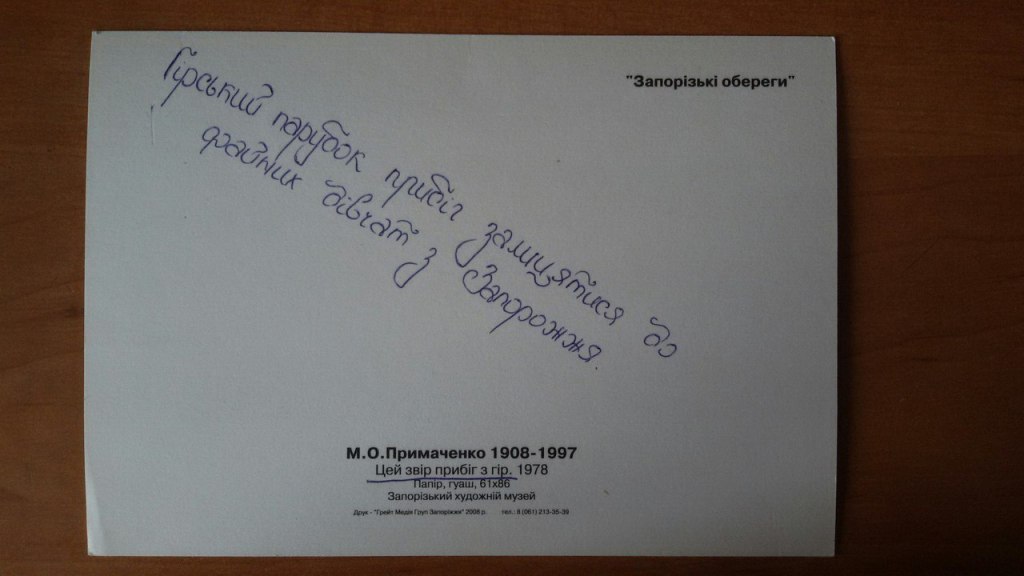 "Запорізькі обереги"
Гірський парубок прибіг залицятися до
файних дівчат з Запорожжя.
М.О.Примаченко 1908-1997
Цей звір прибіг з гір. 1978
Папір, гуаш, 61х86
Запорізький художній музей
Друк - "Грейт Медіа Груп Запоріжжя" 2008 р. тел.: 8 (061) 213-35-39